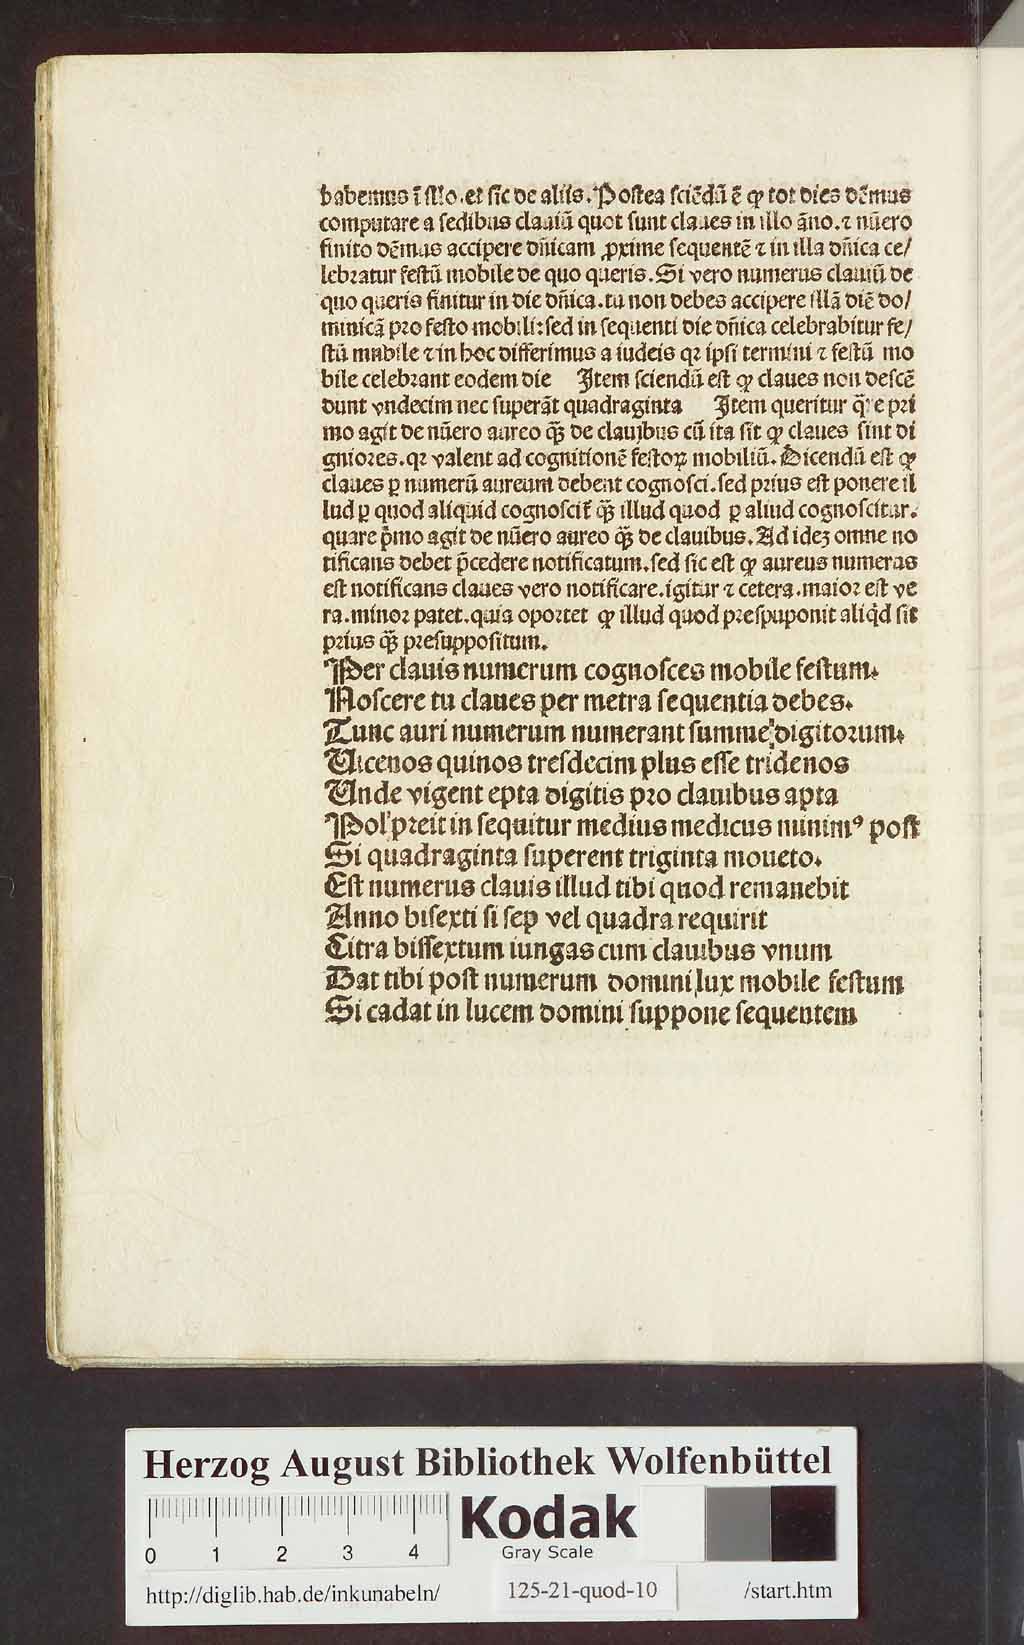 habemus ī illo. et sic de aliis. Postea sciēdū ē ꝙ tot dies dēmus
computare a sedibus clauiū quot sunt claues in illo āno. ⁊ nūero
finito dēmus accipere dñicam ꝓxime sequentē ⁊ in illa dñica ce/
lebratur festū mobile de quo queris. Si vero numerus clauiū de
quo queris finitur in die dñica. tu non debes accipere illā diē do/
minicā pro festo mobili: sed in sequenti die dñica celebrabitur fe/
stū mobile ⁊ in hoc differimus a iudeis qꝛ ipsi termini ⁊ festū mo
bile celebrant eodem die Item sciendū est ꝙ claues non descē
dunt vndecim nec superāt quadraginta Item queritur q̄re pri
mo agit de nūero aureo qꝫ̄ de clauibus cū ita sit ꝙ claues sint di
gniores. qꝛ valent ad cognitionē festoꝝ mobiliū. Dicendū est ꝙ
claues ꝑ numerū aureum debent cognosci. sed prius est ponere il
lud ꝑ quod aliquid cognoscit̄ qꝫ̄ illud quod ꝑ aliud cognoscitur.
quare p̄mo agit de nūero aureo qꝫ̄ de clauibus. Ad ideꝫ omne no
tificans debet p̄cedere notificatum. sed sic est ꝙ aureus numerus
est notificans claues vero notificare. igitur ⁊ cetera. maior est ve
ra. minor patet. quia oportet ꝙ illud quod prespuponit aliq̇d sit
prius qꝫ̄ presuppositum.
Per clauis numerum cognosces mobile festum.
Noscere tu claues per metra sequentia debes.
Tunc auri numerum numerant summe digitorum.
Uicenos quinos tresdecim plus esse tridenos
Unde vigent epta digitis pro clauibus apta
Pol' preit in sequitur medius medicus minimꝰ post
Si quadraginta superent triginta moueto.
Est numerus clauis illud tibi quod remanebit
Anno bisexti si sep vel quadra requirit
Citra bissextum iungas cum clauibus vnum
Dat tibi post numerum domini lux mobile festum
Si cadat in lucem domini suppone sequentem
Herzog August Bibliothek Wolfenbüttel
0 1 2 3 4
Kodak
Gray Scale
http://diglib.hab.de/inkunabeln/ 125-21-quod-10 /start.htm